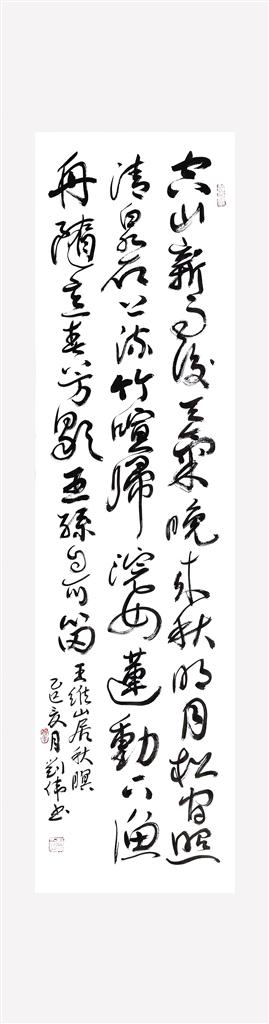 空山新雨後天氣晚來秋明月松間照
清泉石上流竹喧歸浣女蓮動下漁
舟隨意春芳歇王孫自可留
王維山居秋暝
乙巳夏月劉偉書